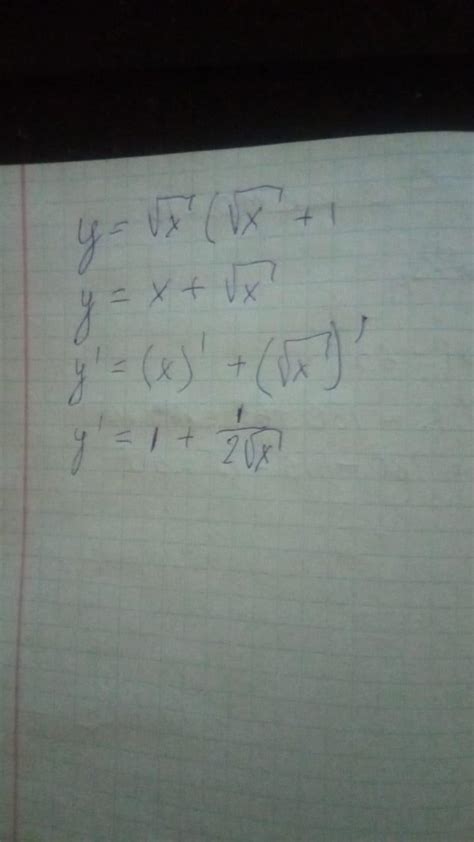 y = √x (√x + 1
y = x + √x
y' = (x)' + (√x)'
y' = 1 + 1/(2√x)